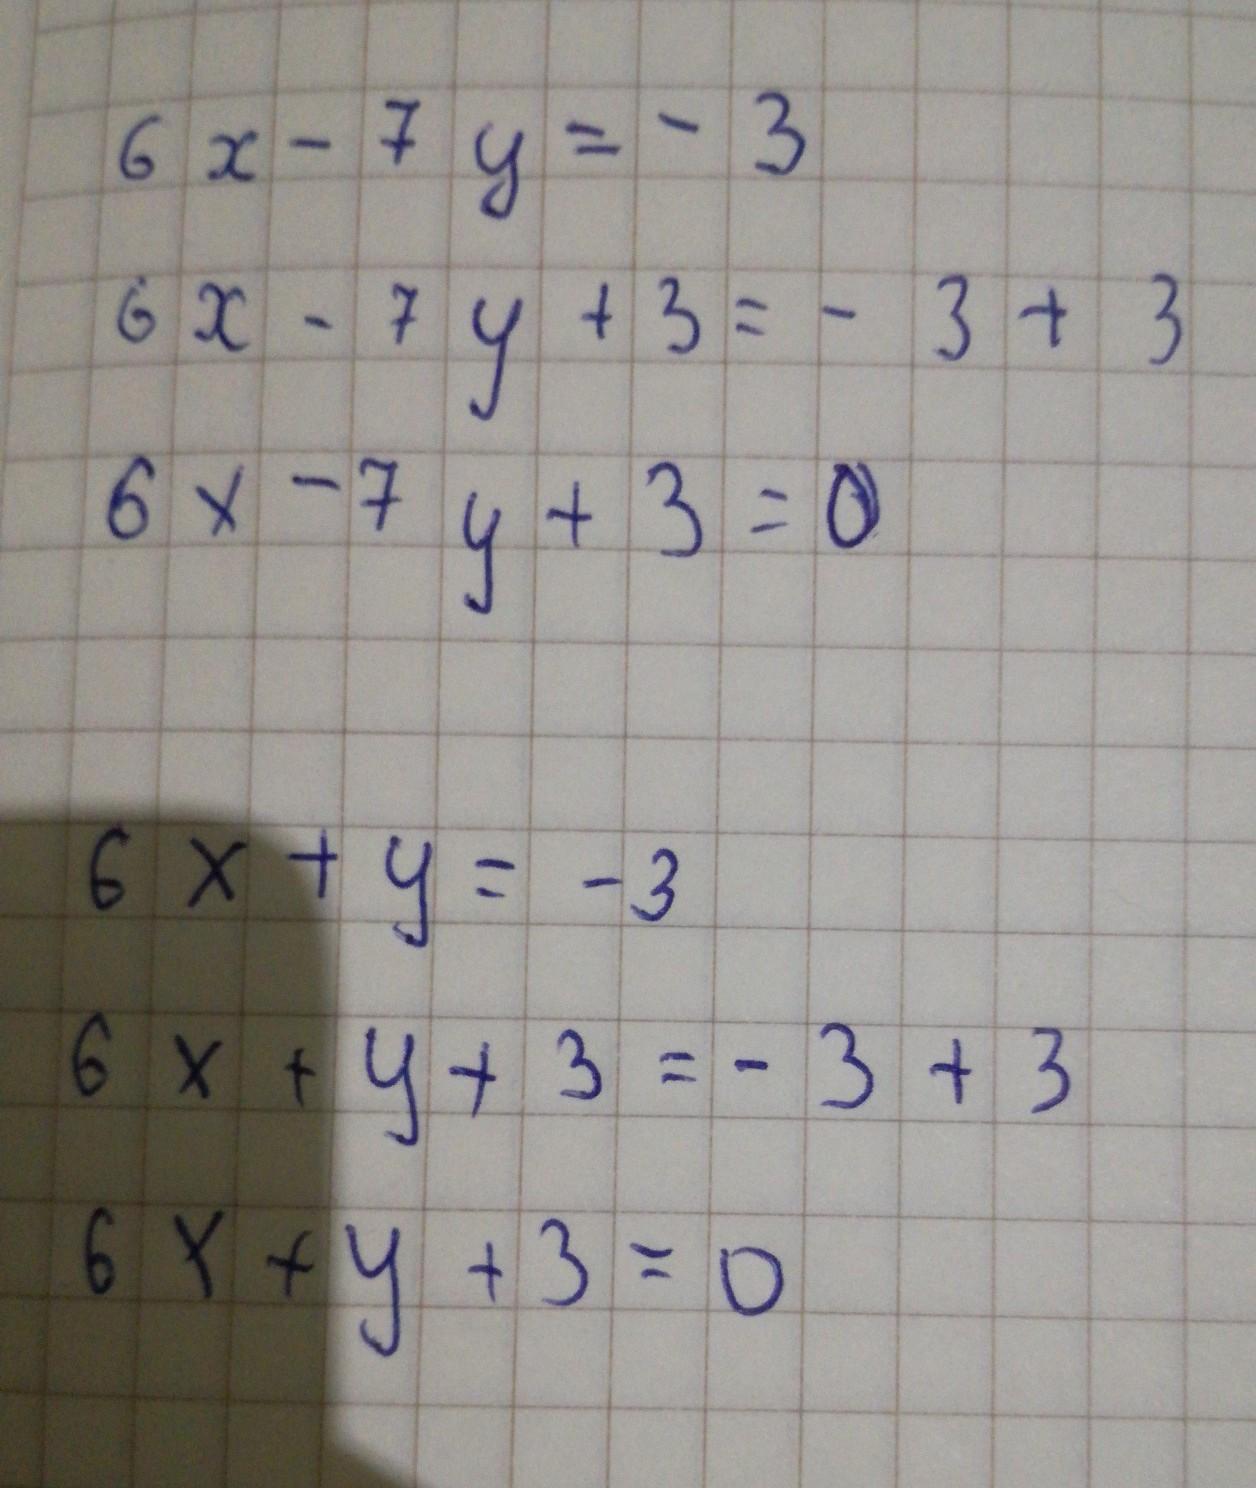 6x - 7y = - 3
6x - 7y + 3 = - 3 + 3
6x - 7y + 3 = 0
6x + y = -3
6x + y + 3 = - 3 + 3
6x + y + 3 = 0